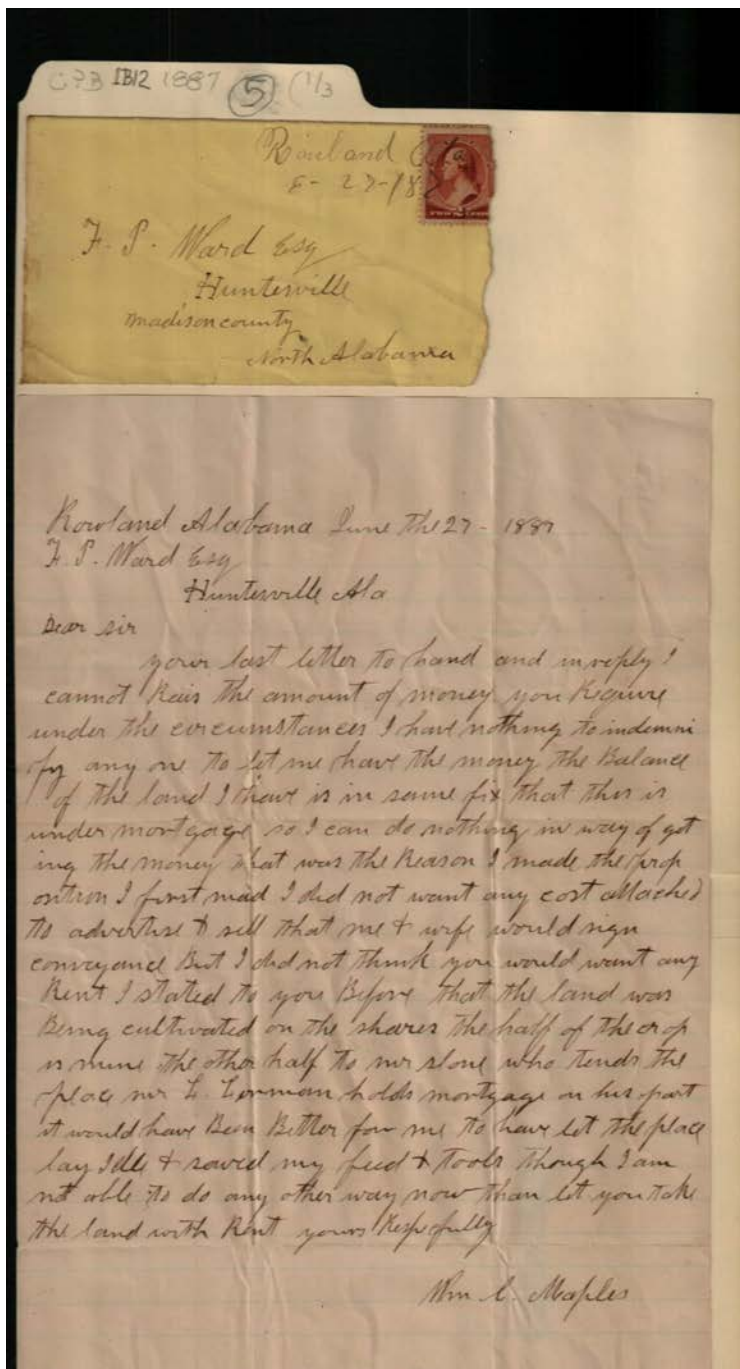 C?B IB12 1887 5 (1/3
Rowland Ala
6 - 27 - 188
F. P. Ward Esq
Huntesville
Madison county
North Alabama
Rowland Alabama June the 27 - 1887
F. P. Ward Esq
Huntesville Ala
Dear Sir
your last letter to hand and in reply I
cannot Rais the amount of money you Require
under the circumstances I have nothing to indemni
fy any one to let me have the money the Balance
of the land I have is in same fix that this is
under mortgage so I can do nothing in way of get
ing the money that was the Reason I made the prop
ontion I first mad I did not want any cost attached
to advertise & sell that me & wife would sign
conveyance But I did not think you would want any
Rent I stated to you Before that the land was
Being cultivated on the shares the half of the crop
is mine the other half to mr slone who tends the
place mr L. Lerman holds mortgage on his part
it would have Been Better for me to have let the place
lay Idle & saved my feed & Tools though I am
not able to do any other way now than let you take
the land with Rent yours Respfully
Wm C. Maples